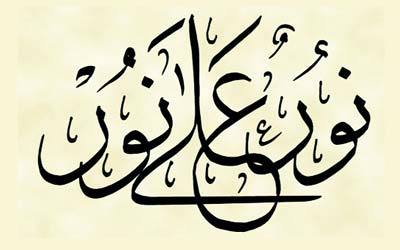 نُورٌ عَلَىٰ نُورٍ